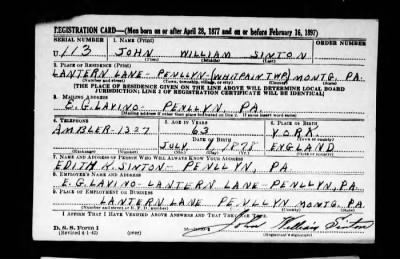 REGISTRATION CARD—(Men born on or after April 28, 1877 and on or before February 16, 1897)
SERIAL NUMBER 1. NAME (Print) ORDER NUMBER
U 113 JOHN WILLIAM SINTON
(First) (Middle) (Last)
2. PLACE OF RESIDENCE (Print)
LANTERN LANE - PENLLYN - (WHITPAIN TWP) MONTG. PA.
(Number and street) (Town, township, village, or city) (County) (State)
[THE PLACE OF RESIDENCE GIVEN ON THE LINE ABOVE WILL DETERMINE LOCAL BOARD
JURISDICTION; LINE 2 OF REGISTRATION CERTIFICATE WILL BE IDENTICAL]
3. MAILING ADDRESS
E. G. LAVINO - PENLLYN, PA.
[Mailing address if other than place indicated on line 2. If same insert word same]
4. TELEPHONE 5. AGE IN YEARS 6. PLACE OF BIRTH
AMBLER-1327 63 YORK.
DATE OF BIRTH (Town or county)
JULY 9 1878 ENGLAND
(Exchange) (Number) (Mo.) (Day) (Yr.) (State or country)
7. NAME AND ADDRESS OF PERSON WHO WILL ALWAYS KNOW YOUR ADDRESS
EDITH K. SINTON - PENLLYN, PA
8. EMPLOYER'S NAME AND ADDRESS
E. G. LAVINO - LANTERN LANE - PENLLYN, PA.
9. PLACE OF EMPLOYMENT OR BUSINESS
LANTERN LANE PENLLYN MONTG. PA.
(Number and street or R. F. D. number) (Town) (County) (State)
I AFFIRM THAT I HAVE VERIFIED ABOVE ANSWERS AND THAT THEY ARE TRUE.
D. S. S. Form 1
(Revised 4-1-42) (over) John William Sinton
(Registrant's signature)